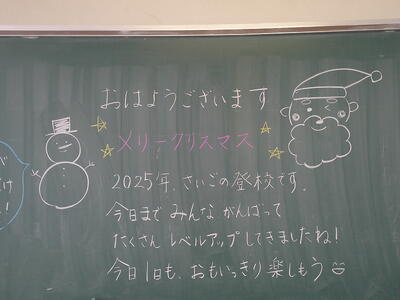 おはようございます
メリークリスマス
2025年、さいごの登校です。
今日まで みんな がんばって
たくさん レベルアップしてきましたね!
今日1日も、おもいっきり 楽しもう